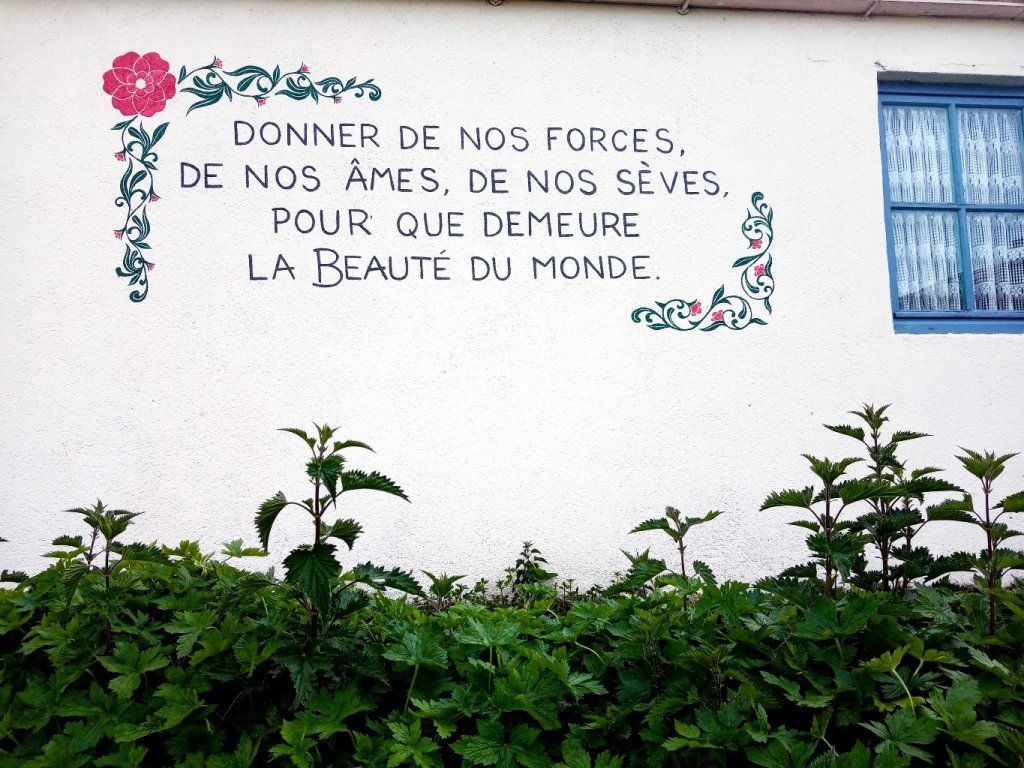 DONNER DE NOS FORCES,
DE NOS ÂMES, DE NOS SÈVES,
POUR QUE DEMEURE
LA BEAUTÉ DU MONDE.